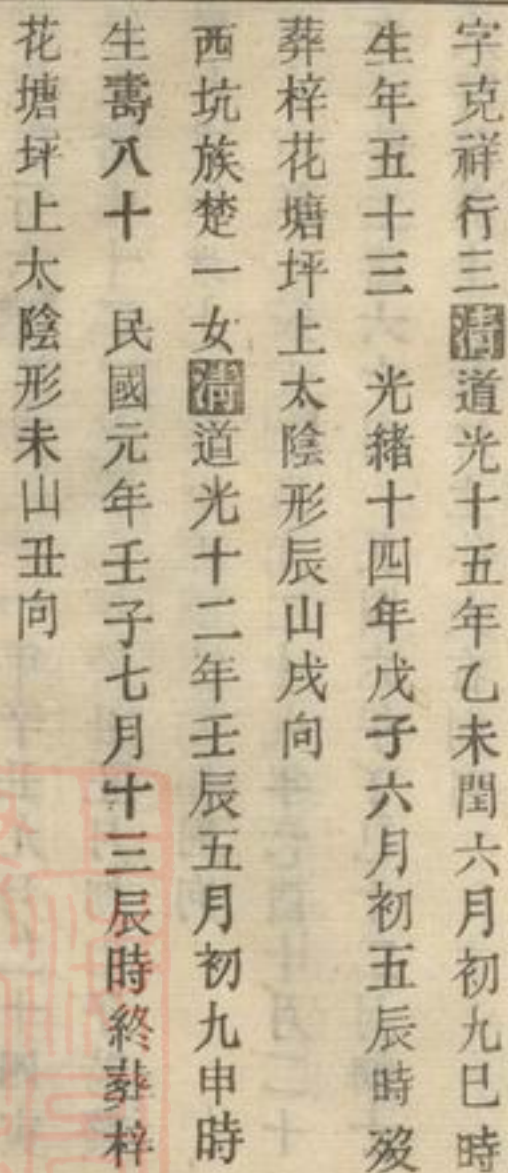 字克祥行三清道光十五年乙未閏六月初九巳時
生年五十三　光緒十四年戊子六月初五辰時歿
葬梓花塘坪上太陰形辰山戌向
西坑族楚一女清道光十二年壬辰五月初九申時
生壽八十　民國元年壬子七月十三辰時終葬梓
花塘坪上太陰形未山丑向